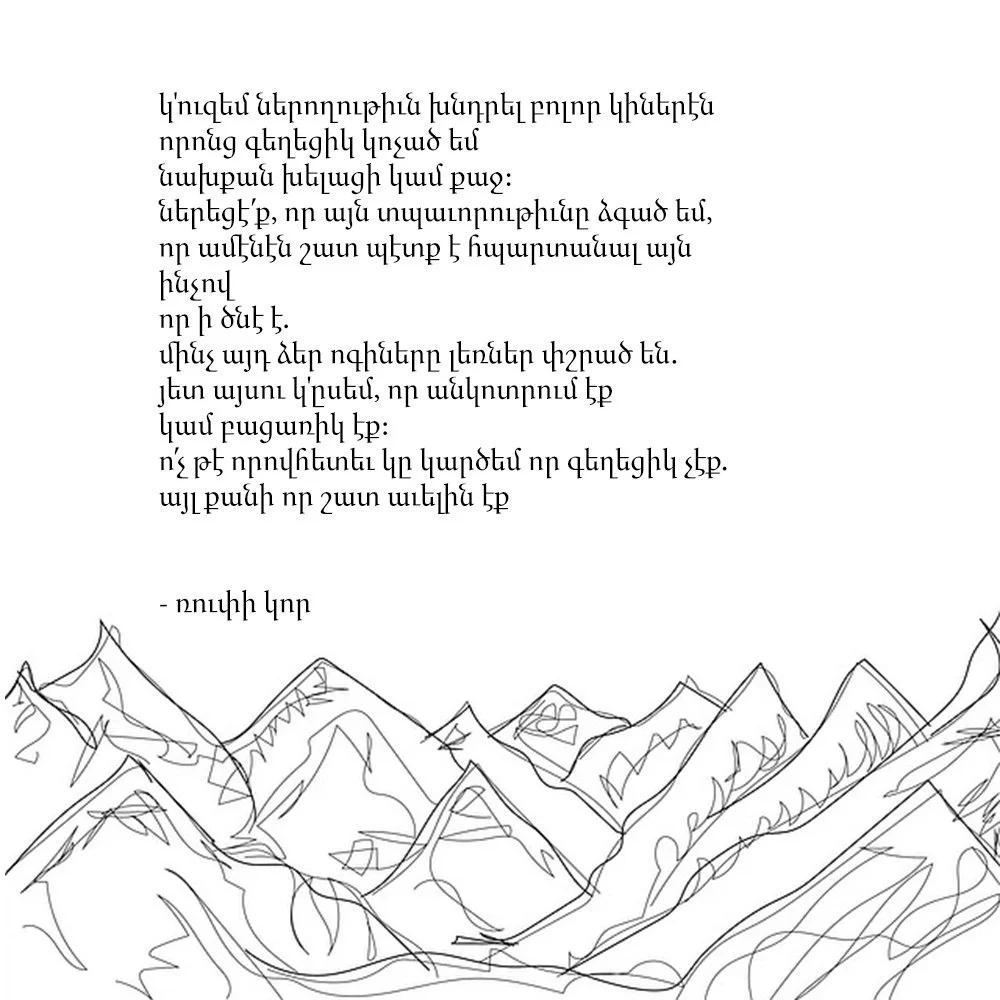 կ'ուզեմ ներողութիւն խնդրել բոլոր կիներէն
որոնց գեղեցիկ կոչած եմ
նախքան խելացի կամ քաջ։
ներեցէ՛ք, որ այն տպաւորութիւնը ձգած եմ,
որ ամէնէն շատ պէտք է հպարտանալ այն
ինչով
որ ի ծնէ է.
մինչ այդ ձեր ոգիները լեռներ փշրած են.
յետ այսու կ'ըսեմ, որ անկոտրում էք
կամ բացառիկ էք։
ո՛չ թէ որովհետեւ կը կարծեմ որ գեղեցիկ չէք.
այլ քանի որ շատ աւելին էք
- ռուփի կոր